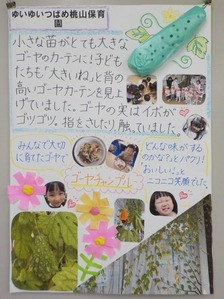 ゆいゆいつばめ桃山保育
園
小さな苗がとても大きな
ゴーヤのカーテンに!子ども
たちも「大きいね」と背の
高いゴーヤカーテンを見上
げていました。ゴーヤの実はイボが
ゴツゴツ。指をさしたり触っていました。
みんなで大切
に育てたゴーヤで
ゴーヤチャンプル
どんな味がする
のかな?とパクリ!
「おいしい」と
ニコニコ笑顔でした。